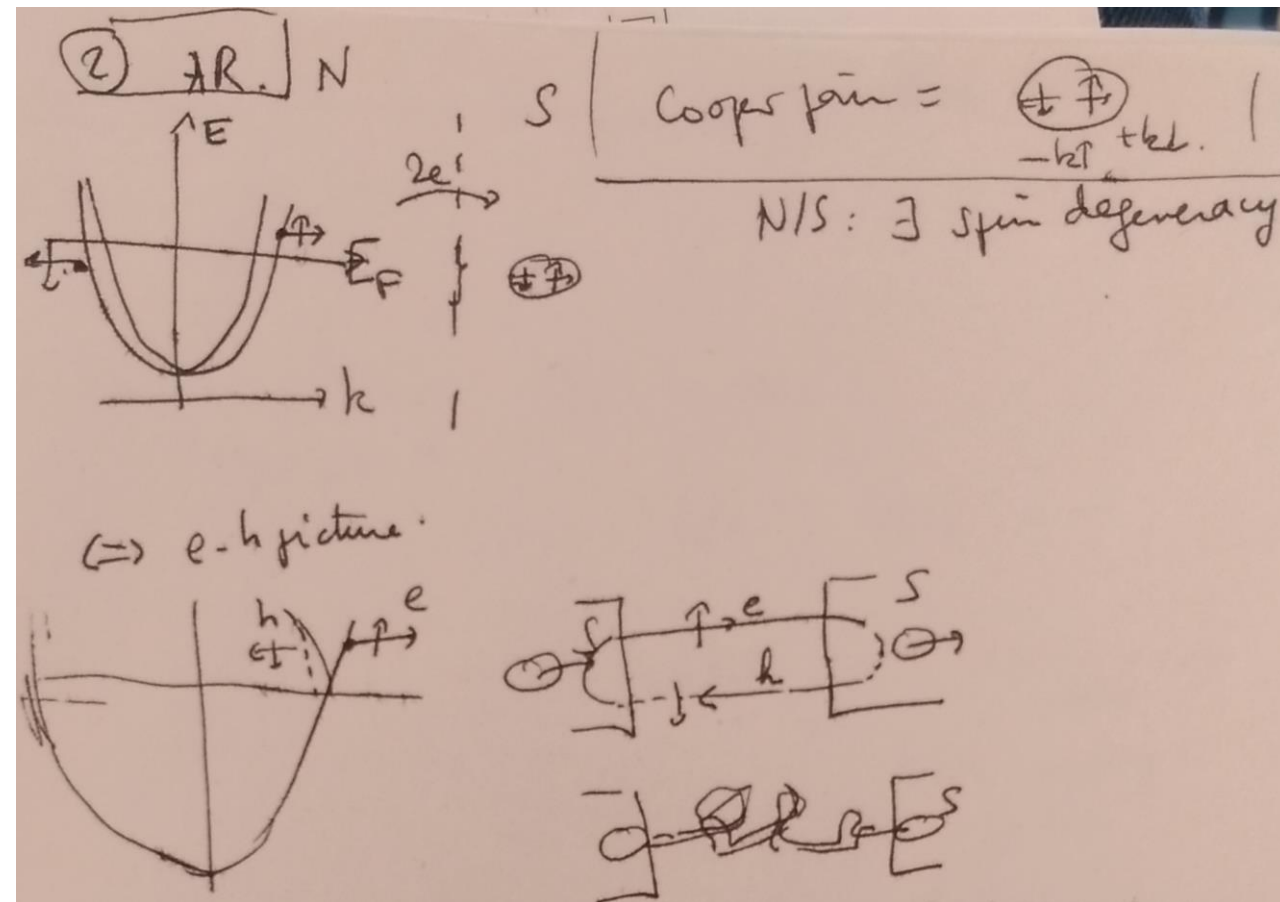 ② AR. N
S
Cooper pair = ↓ ↑
-k↑ +k↓.
N/S: ∃ spin degeneracy
E
2e
↑
E_F
↓ ↑
k
<=> e-h picture.
h
↓
↑
e
S
↑ e
S
h
↓
S